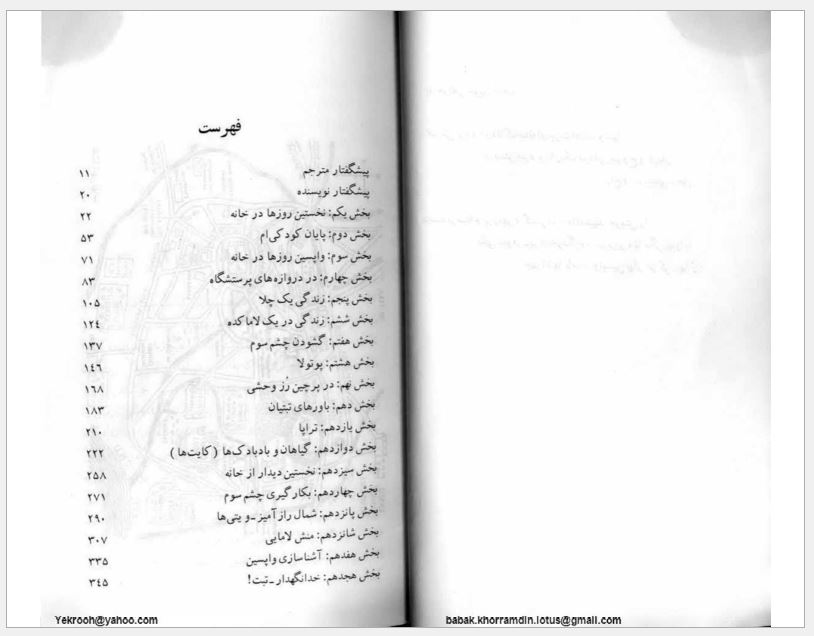 فهرست
پیشگفتار مترجم ۱۱
پیشگفتار نویسنده ۲۰
بخش یکم: نخستین روزها در خانه ۲۲
بخش دوم: پایان کودکی‌ام ۵۳
بخش سوم: واپسین روزها در خانه ۷۱
بخش چهارم: در دروازه‌های پرستشگاه ۸۳
بخش پنجم: زندگی یک چلا ۱۰۵
بخش ششم: زندگی در یک لاماکده ۱۲٤
بخش هفتم: گشودن چشم سوم ۱۳۷
بخش هشتم: پوتولا ۱٤٦
بخش نهم: در پرچین رُز وحشی ۱٦۸
بخش دهم: باورهای تبتیان ۱۸۳
بخش یازدهم: تراپا ۲۱۰
بخش دوازدهم: گیاهان و بادبادک‌ها (کایت‌ها) ۲۲۲
بخش سیزدهم: نخستین دیدار از خانه ۲۵۸
بخش چهاردهم: بکارگیری چشم سوم ۲۷۱
بخش پانزدهم: شمال رازآمیز ـ و یتی‌ها ۲۹۰
بخش شانزدهم: منش لامایی ۳۰۷
بخش هفدهم: آشناسازی واپسین ۳۳۵
بخش هجدهم: خدانگهدار ـ تبت! ۳٤۵
Yekrooh@yahoo.com
babak.khorramdin.lotus@gmail.com